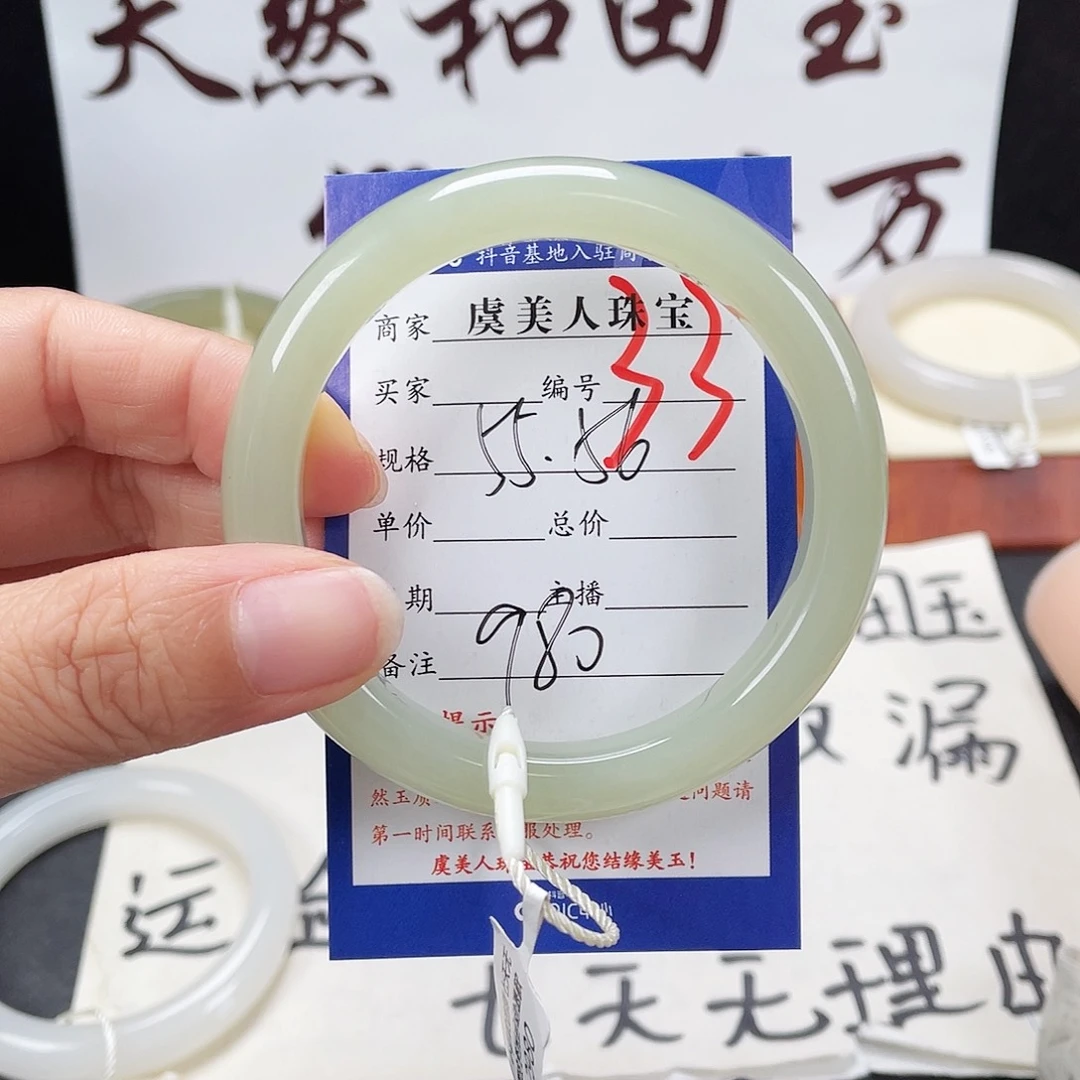 天然和田玉
万
抖音基地入驻商
商家 虞美人珠宝
买家 编号 33
规格 55.56
单价 总价
期 主播
980
备注
提示
然玉质 问题请
第一时间联系 服处理。
虞美人珠宝恭祝您结缘美玉!
田玉
漏
运
七天无理由